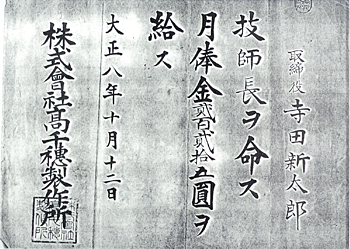 取締役 寺田新太郎
技師長ヲ命ス
月俸金貳百貳拾五圓ヲ
給ス
大正八年十月十二日
株式會社髙千穗製作所